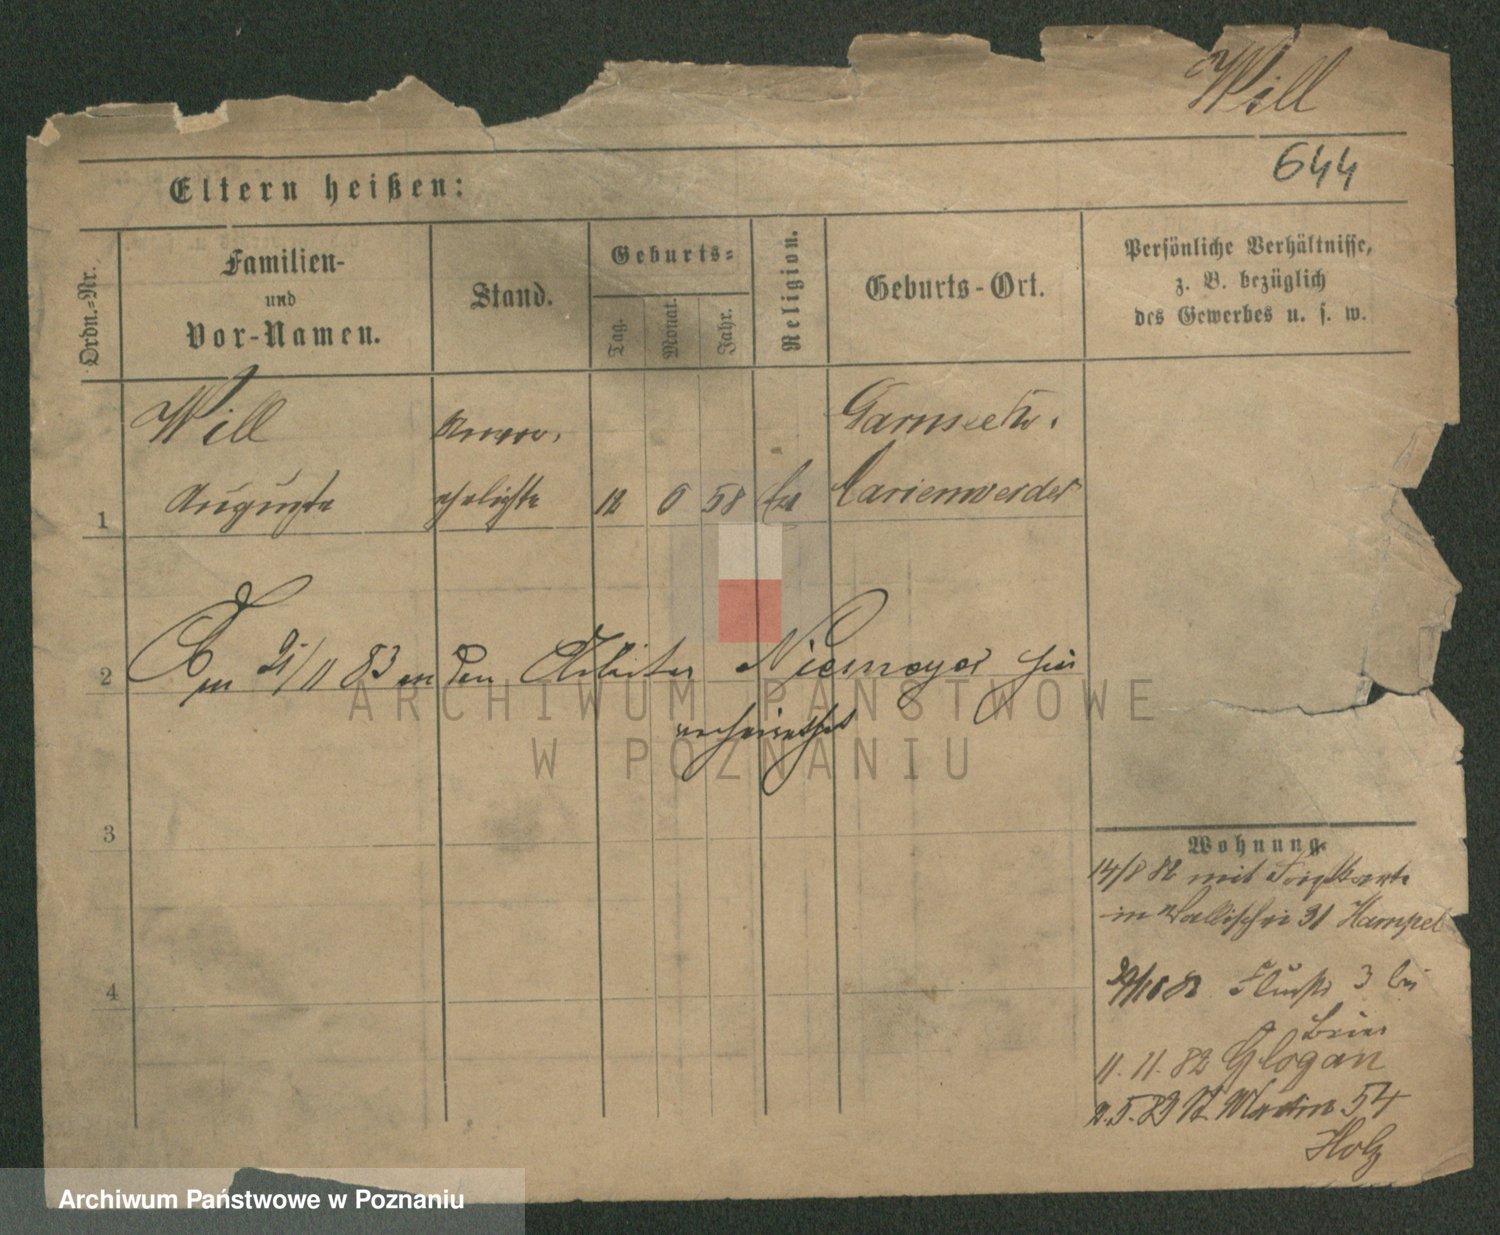 Will
644
Eltern heißen:
Ordn.-Nr.
Familien-
und
Vor-Namen.
Stand.
Geburts-
Tag.
Monat.
Jahr.
Religion.
Geburts-Ort.
Persönliche Verhältnisse,
z. B. bezüglich
des Gewerbes u. s. w.
Will
Garnsee
1
Auguste
ehelichte
12
6
58
Marienwerder
2
Am 21/11 83 an den Arbeiter Niemeyer hier
verheirathet
ARCHIWUM PAŃSTWOWE
W POZNANIU
3
4
Wohnung.
14/8 82 mit
in Wallischei 31 Hampel
82 3 bei
11.11.82 Glogau
2.5.83 St Martin 54
Holz
Archiwum Państwowe w Poznaniu